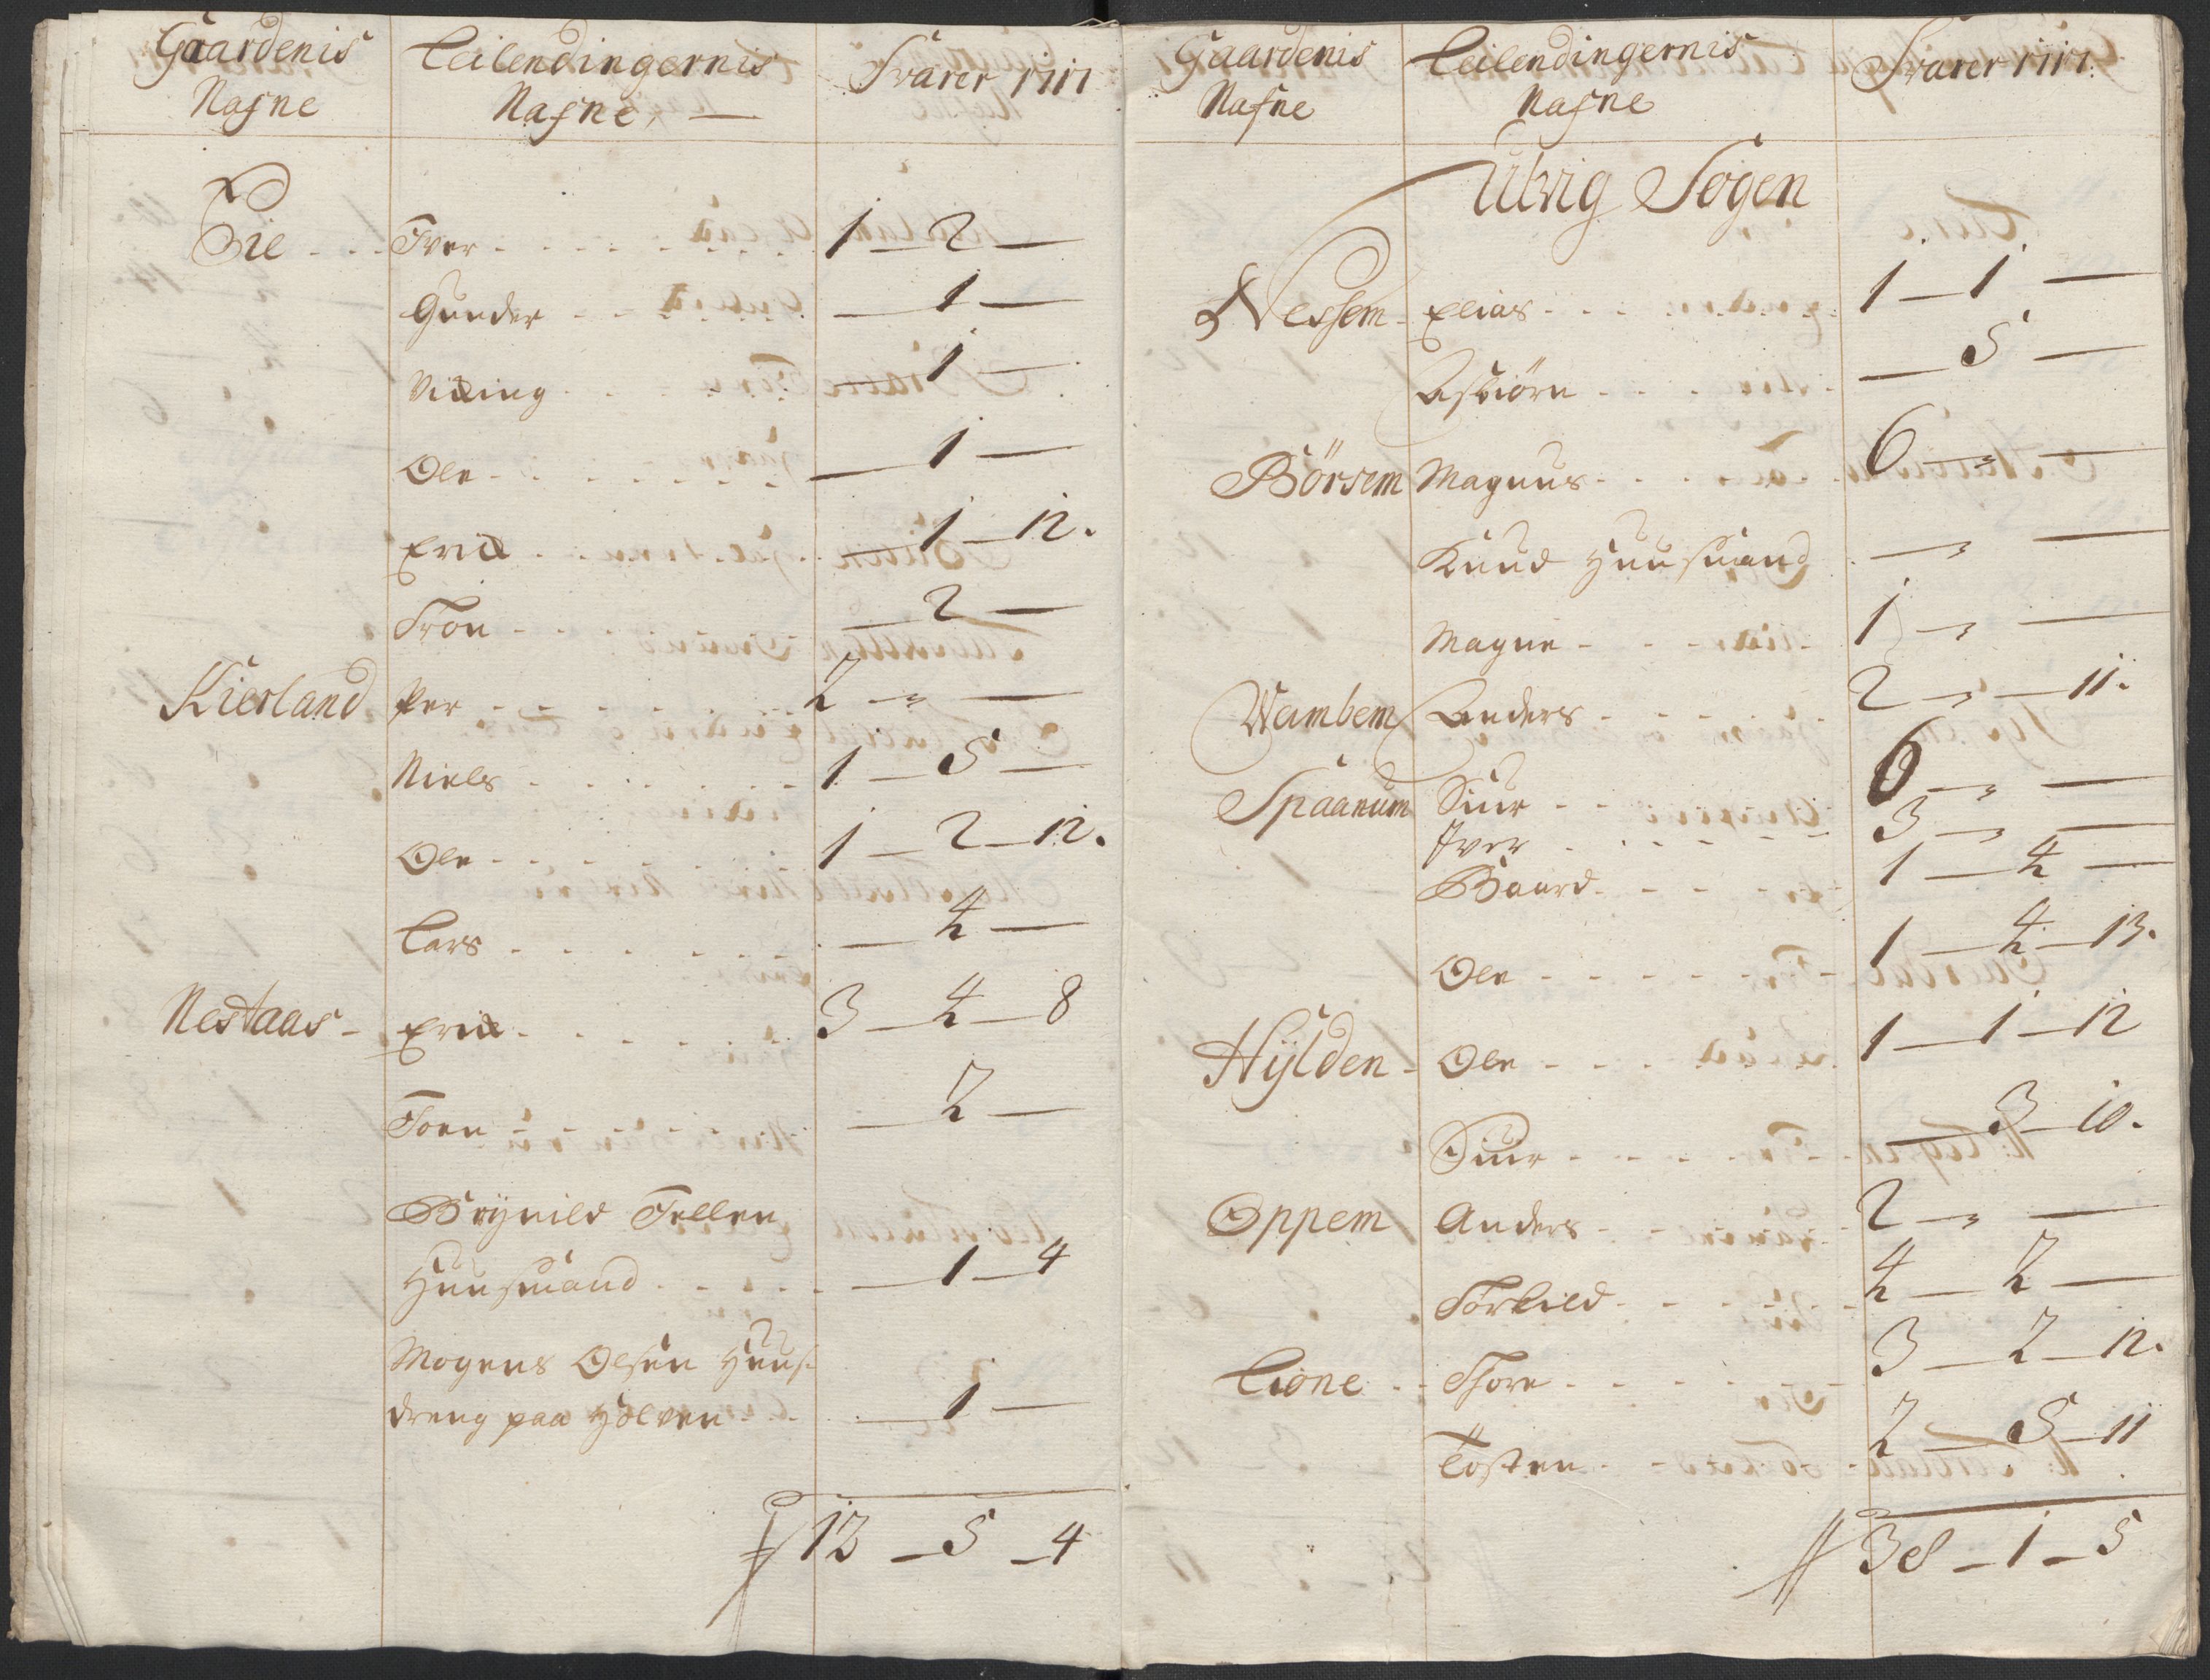 Gaardenis Nafne | Leilendingernis Nafne, — | Svarer 1717
Sie - - Iver - - - 1 — 2 —
Gunder - - - — 1 —
Viking - - - — 1 —
Ole - - - — 1 —
Erick - - - — 1 — 12.
Tron - - - — 2 —
Kierland Per - - - 2 — „ —
Niels - - - 1 — 5 —
Ole - - - 1 — 2 — 12.
Lars - - - — 4 —
Nestaas - Erick - - - 3 — 4 — 8
Toen - - - — 2 —
Brynild Tellen
Huusmand - - - — 1 — 4
Mogens Olsen Huus-
dreng paa Holven - - — 1 —
12 — 5 — 4
Gaardenis Nafne | Leilendingernis Nafne | Svarer 1717.
Ulvig Sogen
Nessem - Elias - - - 1 — 1 —
Asbiörn - - - — 5 —
Börsem Magnus - - - 6 — „ —
Knud Huusmand — „ —
Magne - - - 1 — „ —
Wambem Anders - - - 2 — „ — 11.
Spaanum Siur - - - 6 — „ —
Iver - - - 3 — „ —
Baard - - - 1 — 4 —
Ole - - - 1 — 4 — 13.
Hÿlden - Ole - - - 1 — 1 — 12
Siur - - - — 3 — 10.
Oppem Anders - - - 2 — „ —
Torkild - - - 4 — 2 —
Lione - - Thore - - - 3 — 2 — 12.
Tosten - - - 2 — 5 — 11
38 — 1 — 5